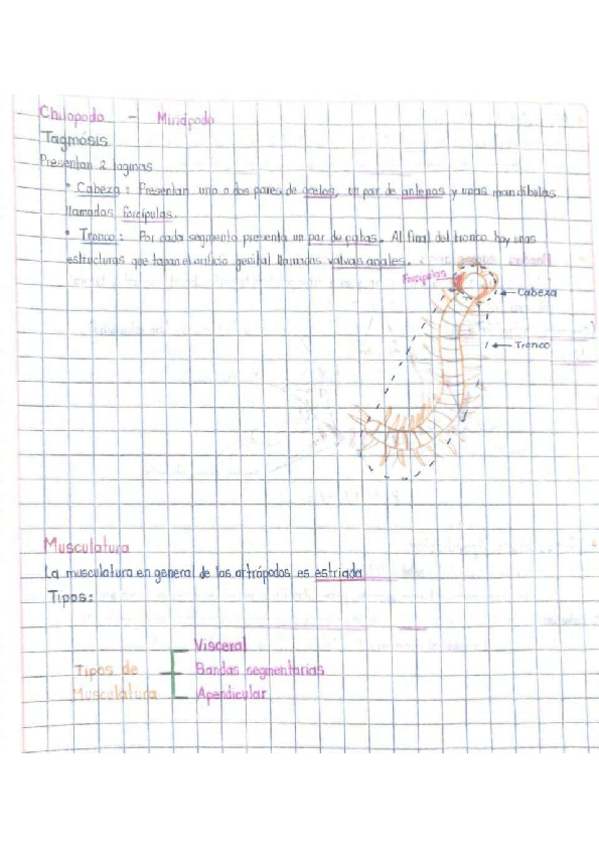 Chilopoda - Miriápodo
Tagmosis
Presentan 2 tagmas
• Cabeza: Presentan uno o dos pares de ocelos, un par de antenas y unas mandíbulas
llamadas forcípulas.
• Tronco: Por cada segmento presenta un par de patas. Al final del tronco hay unas
estructuras que tapan el orificio genital llamadas valvas anales.
Forcipulas
Cabeza
Tronco
Musculatura
La musculatura en general de los artrópodos es estriada
Tipos:
Visceral
Tipos de Bandas segmentarias
Musculatura Apendicular